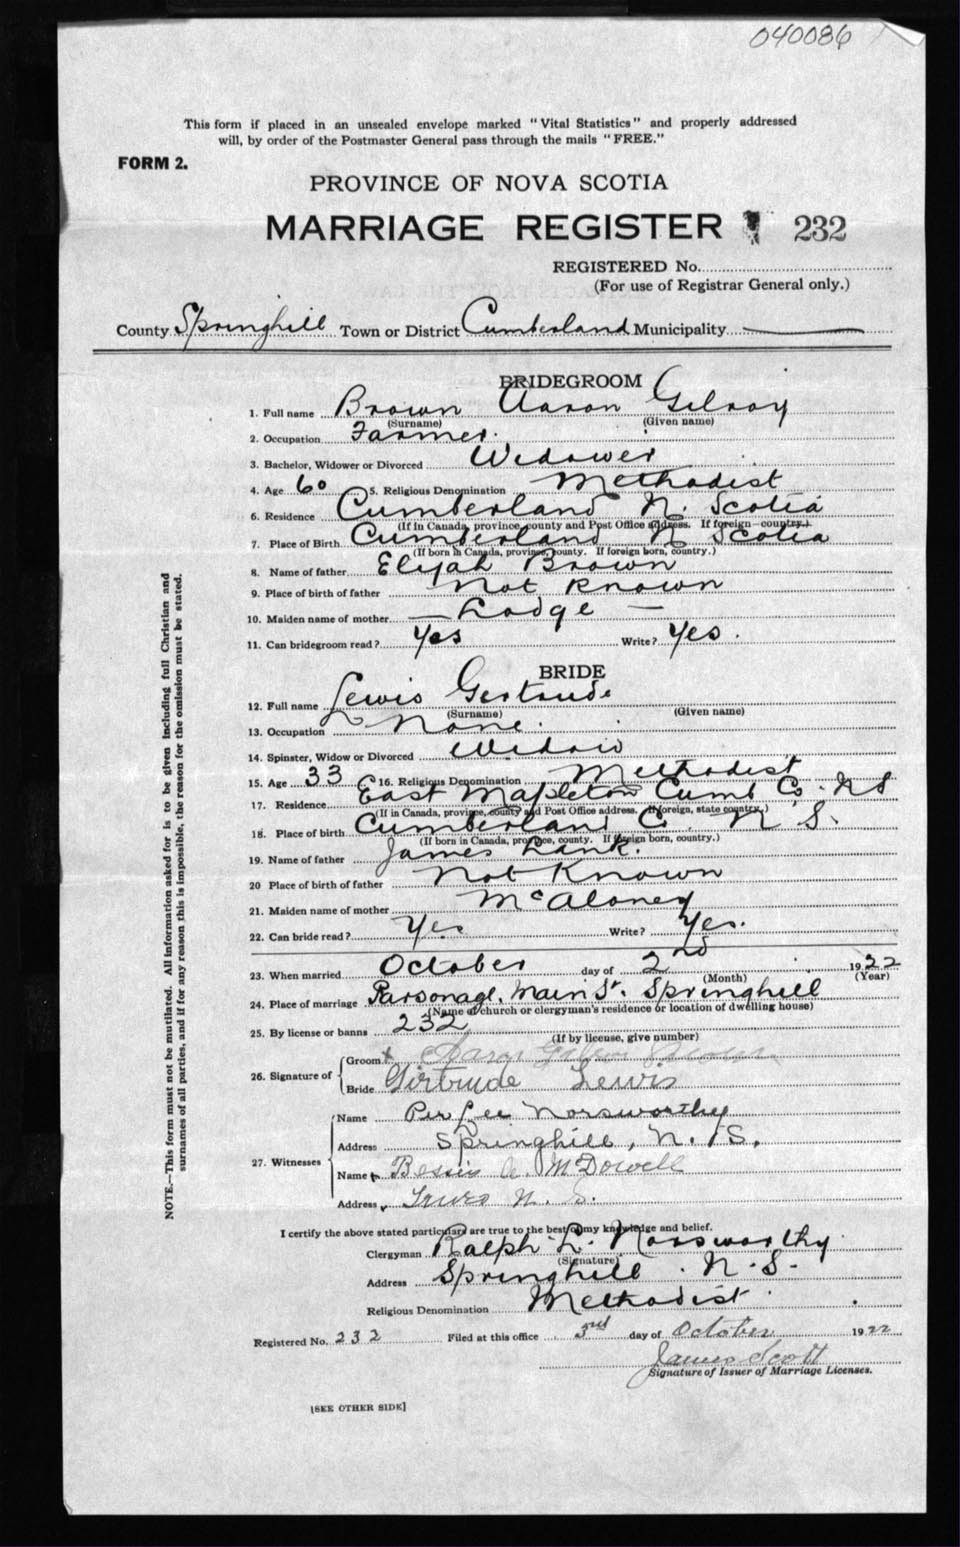 040086
This form if placed in an unsealed envelope marked "Vital Statistics" and properly addressed
will, by order of the Postmaster General pass through the mails "FREE."
FORM 2.
PROVINCE OF NOVA SCOTIA
MARRIAGE REGISTER 232
REGISTERED No.
(For use of Registrar General only.)
County Springhill Town or District Cumberland Municipality
BRIDEGROOM
1. Full name Brown Aaron Gilroy
(Surname) (Given name)
2. Occupation Farmer.
3. Bachelor, Widower or Divorced Widower
4. Age 60 5. Religious Denomination Methodist
6. Residence Cumberland N. Scotia
(If in Canada, province, county and Post Office address. If foreign—country.)
7. Place of Birth Cumberland N Scotia
(If born in Canada, province, county. If foreign born, country.)
8. Name of father Elijah Brown
9. Place of birth of father Not Known
10. Maiden name of mother — Lodge —
11. Can bridegroom read? Yes Write? Yes.
BRIDE
12. Full name Lewis Gertrude
(Surname) (Given name)
13. Occupation None.
14. Spinster, Widow or Divorced Widow
15. Age 33 16. Religious Denomination Methodist
17. Residence East Mapleton Cumb Co. N S
(If in Canada, province, county and Post Office address. If foreign, state country.)
18. Place of birth Cumberland Co. N S.
(If born in Canada, province, county. If foreign born, country.)
19. Name of father James Rank.
20 Place of birth of father Not Known
21. Maiden name of mother McAloney
22. Can bride read? Yes Write? Yes.
23. When married October day of 2nd 1922
(Month) (Year)
24. Place of marriage Parsonage, Main St. Springhill
(Name of church or clergyman's residence or location of dwelling house)
25. By license or banns 232
(If by license, give number)
26. Signature of Groom x Aaron Brown
Bride Girtrude Lewis
27. Witnesses Name Lee Norsworthy
Address Springhill, N. S.
Name Bessie A. McDowell
Address Truro N. S.
I certify the above stated particulars are true to the best of my knowledge and belief.
Clergyman Ralph L. Norsworthy
(Signature)
Address Springhill N.S.
Religious Denomination Methodist.
Registered No. 232 Filed at this office 3rd day of October 1922
James Scott
Signature of Issuer of Marriage Licenses.
[SEE OTHER SIDE]
NOTE.—This form must not be mutilated. All information asked for is to be given including full Christian and
surnames of all parties, and if for any reason this is impossible, the reason for the omission must be stated.